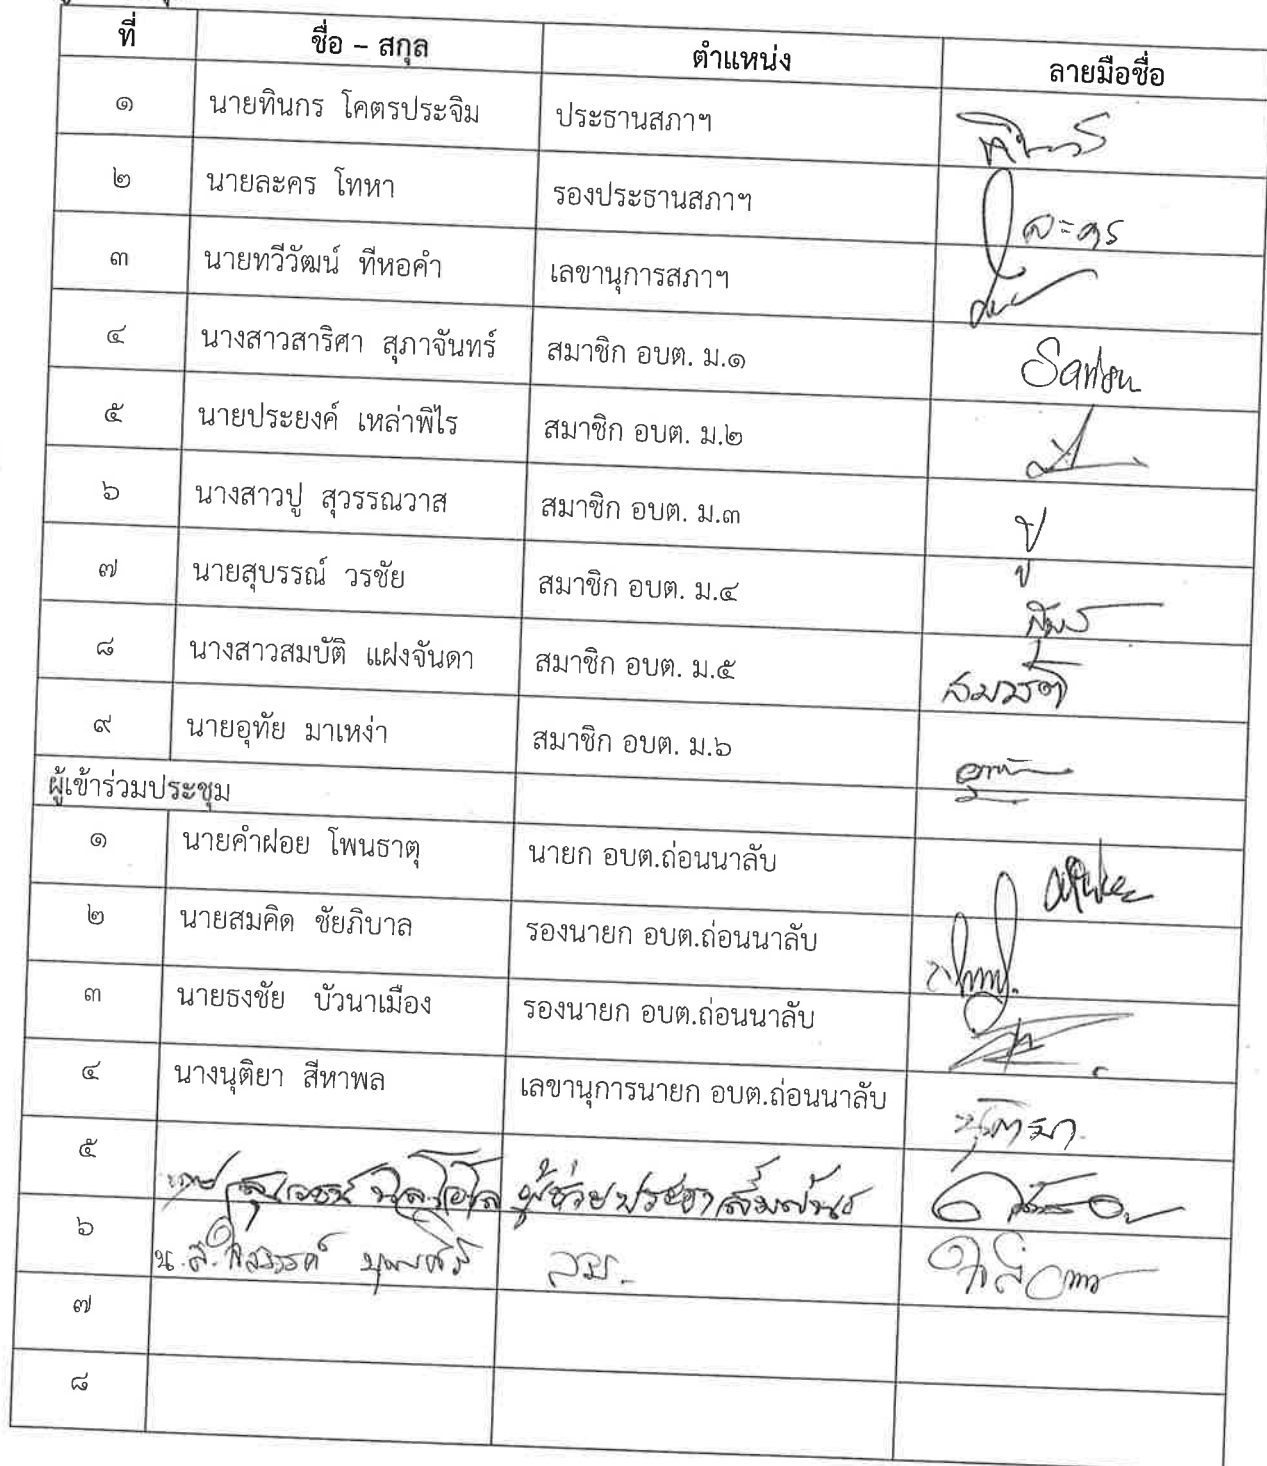 ที่ ชื่อ – สกุล ตำแหน่ง ลายมือชื่อ
๑ นายทินกร โคตรประจิม ประธานสภาฯ
๒ นายละคร โทหา รองประธานสภาฯ ละคร
๓ นายทวีวัฒน์ ทีหอคำ เลขานุการสภาฯ
๔ นางสาวสาริศา สุภาจันทร์ สมาชิก อบต. ม.๑
๕ นายประยงค์ เหล่าพิไร สมาชิก อบต. ม.๒
๖ นางสาวปู สุวรรณวาส สมาชิก อบต. ม.๓ ปู
๗ นายสุบรรณ์ วรชัย สมาชิก อบต. ม.๔
๘ นางสาวสมบัติ แฝงจันดา สมาชิก อบต. ม.๕ สมบัติ
๙ นายอุทัย มาเหง่า สมาชิก อบต. ม.๖
ผู้เข้าร่วมประชุม
๑ นายคำฝอย โพนธาตุ นายก อบต.ถ่อนนาลับ
๒ นายสมคิด ชัยภิบาล รองนายก อบต.ถ่อนนาลับ
๓ นายธงชัย บัวนาเมือง รองนายก อบต.ถ่อนนาลับ
๔ นางนุติยา สีหาพล เลขานุการนายก อบต.ถ่อนนาลับ นุติยา
๕ ผู้ช่วยประชาสัมพันธ์
๖ น.ส.
๗
๘